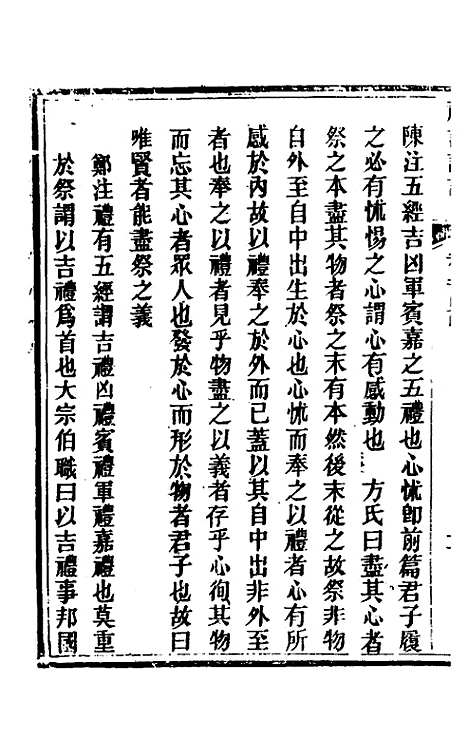 陳注五經吉凶軍賓嘉之五禮也心怵卽前篇君子履
之必有怵惕之心謂心有感動也　方氏曰盡其心者
祭之本盡其物者祭之末有本然後末從之故祭非物
自外至自中出生於心也心怵而奉之以禮者心有所
感於內故以禮奉之於外而已蓋以其自中出非外至
者也奉之以禮者見乎物盡之以義者存乎心徇其物
而忘其心者眾人也發於心而形於物者君子也故曰
唯賢者能盡祭之義
鄭注禮有五經謂吉禮凶禮賓禮軍禮嘉禮也莫重
於祭謂以吉禮爲首也大宗伯職曰以吉禮事邦國